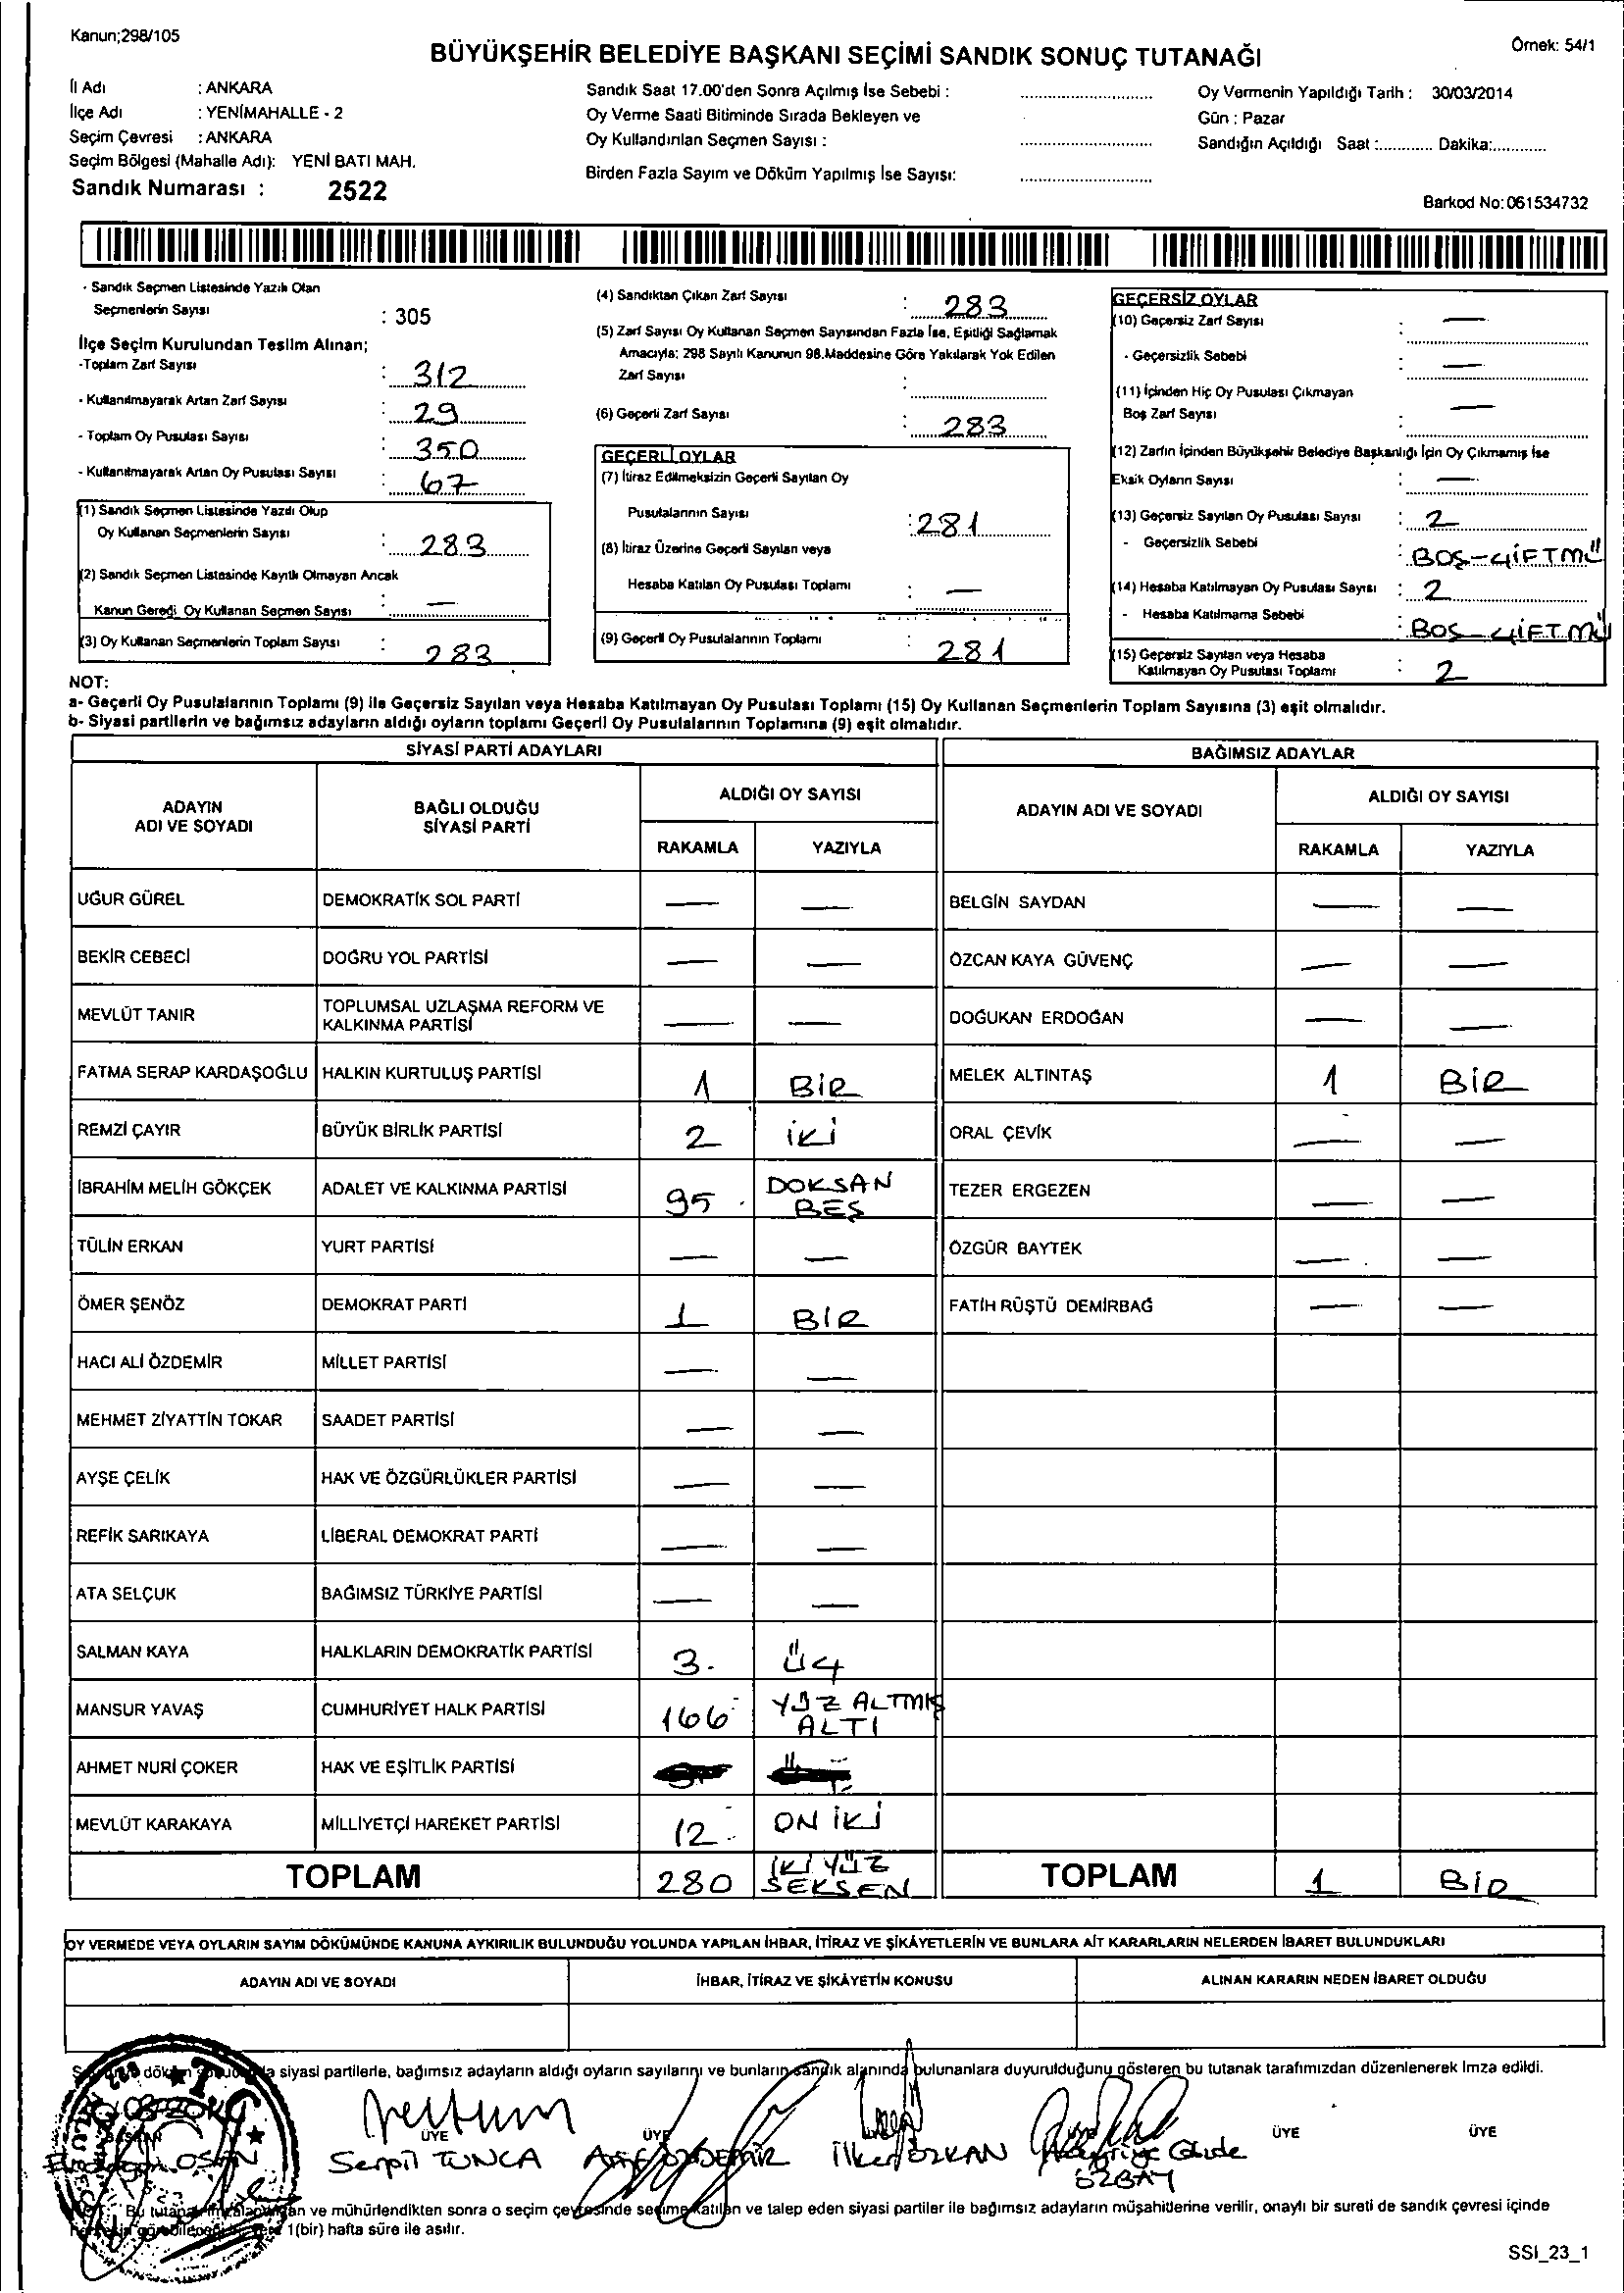 Kanun;298/105
Örnek: 54/1
BÜYÜKŞEHİR BELEDİYE BAŞKANI SEÇİMİ SANDIK SONUÇ TUTANAĞI
İl Adı : ANKARA
İlçe Adı : YENİMAHALLE - 2
Seçim Çevresi : ANKARA
Seçim Bölgesi (Mahalle Adı): YENİ BATI MAH.
Sandık Numarası : 2522
Sandık Saat 17.00'den Sonra Açılmış İse Sebebi :
Oy Verme Saati Bitiminde Sırada Bekleyen ve
Oy Kullandırılan Seçmen Sayısı :
Birden Fazla Sayım ve Döküm Yapılmış İse Sayısı:
Oy Vermenin Yapıldığı Tarih : 30/03/2014
Gün : Pazar
Sandığın Açıldığı Saat :............ Dakika:............
Barkod No:061534732
- Sandık Seçmen Listesinde Yazılı Olan
Seçmenlerin Sayısı : 305
İlçe Seçim Kurulundan Teslim Alınan;
-Toplam Zarf Sayısı : 312
- Kullanılmayarak Artan Zarf Sayısı : 29
- Toplam Oy Pusulası Sayısı : 350
- Kullanılmayarak Artan Oy Pusulası Sayısı : 67
(1) Sandık Seçmen Listesinde Yazılı Olup
Oy Kullanan Seçmenlerin Sayısı : 283
(2) Sandık Seçmen Listesinde Kayıtlı Olmayan Ancak
Kanun Gereği Oy Kullanan Seçmen Sayısı : —
(3) Oy Kullanan Seçmenlerin Toplam Sayısı : 283
(4) Sandıktan Çıkan Zarf Sayısı : 283
(5) Zarf Sayısı Oy Kullanan Seçmen Sayısından Fazla İse, Eşitliği Sağlamak
Amacıyla; 298 Sayılı Kanunun 98.Maddesine Göre Yakılarak Yok Edilen
Zarf Sayısı :
(6) Geçerli Zarf Sayısı : 283
GEÇERLİ OYLAR
(7) İtiraz Edilmeksizin Geçerli Sayılan Oy
Pusulalarının Sayısı : 281
(8) İtiraz Üzerine Geçerli Sayılan veya
Hesaba Katılan Oy Pusulası Toplamı : —
(9) Geçerli Oy Pusulalarının Toplamı : 281
GEÇERSİZ OYLAR
(10) Geçersiz Zarf Sayısı : —
- Geçersizlik Sebebi : —
(11) İçinden Hiç Oy Pusulası Çıkmayan
Boş Zarf Sayısı : —
(12) Zarfın İçinden Büyükşehir Belediye Başkanlığı İçin Oy Çıkmamış İse
Eksik Oyların Sayısı : —
(13) Geçersiz Sayılan Oy Pusulası Sayısı : 2
- Geçersizlik Sebebi : BOŞ-ÇİFT MÜ
(14) Hesaba Katılmayan Oy Pusulası Sayısı : 2
- Hesaba Katılmama Sebebi : BOŞ-ÇİFT MÜ
(15) Geçersiz Sayılan veya Hesaba
Katılmayan Oy Pusulası Toplamı : 2
NOT:
a- Geçerli Oy Pusulalarının Toplamı (9) ile Geçersiz Sayılan veya Hesaba Katılmayan Oy Pusulası Toplamı (15) Oy Kullanan Seçmenlerin Toplam Sayısına (3) eşit olmalıdır.
b- Siyasi partilerin ve bağımsız adayların aldığı oyların toplamı Geçerli Oy Pusulalarının Toplamına (9) eşit olmalıdır.
SİYASİ PARTİ ADAYLARI
ADAYIN ADI VE SOYADI
BAĞLI OLDUĞU SİYASİ PARTİ
ALDIĞI OY SAYISI
RAKAMLA YAZIYLA
UĞUR GÜREL DEMOKRATİK SOL PARTİ — —
BEKİR CEBECİ DOĞRU YOL PARTİSİ — —
MEVLÜT TANIR TOPLUMSAL UZLAŞMA REFORM VE KALKINMA PARTİSİ — —
FATMA SERAP KARDAŞOĞLU HALKIN KURTULUŞ PARTİSİ 1 BİR
REMZİ ÇAYIR BÜYÜK BİRLİK PARTİSİ 2 İKİ
İBRAHİM MELİH GÖKÇEK ADALET VE KALKINMA PARTİSİ 95 DOKSAN BEŞ
TÜLİN ERKAN YURT PARTİSİ — —
ÖMER ŞENÖZ DEMOKRAT PARTİ 1 BİR
HACI ALİ ÖZDEMİR MİLLET PARTİSİ — —
MEHMET ZİYATTİN TOKAR SAADET PARTİSİ — —
AYŞE ÇELİK HAK VE ÖZGÜRLÜKLER PARTİSİ — —
REFİK SARIKAYA LİBERAL DEMOKRAT PARTİ — —
ATA SELÇUK BAĞIMSIZ TÜRKİYE PARTİSİ — —
SALMAN KAYA HALKLARIN DEMOKRATİK PARTİSİ 3 ÜÇ
MANSUR YAVAŞ CUMHURİYET HALK PARTİSİ 166 YÜZ ALTMIŞ ALTI
AHMET NURİ ÇOKER HAK VE EŞİTLİK PARTİSİ
MEVLÜT KARAKAYA MİLLİYETÇİ HAREKET PARTİSİ 12 ON İKİ
TOPLAM 280 İKİ YÜZ SEKSEN
BAĞIMSIZ ADAYLAR
ADAYIN ADI VE SOYADI
ALDIĞI OY SAYISI
RAKAMLA YAZIYLA
BELGİN SAYDAN — —
ÖZCAN KAYA GÜVENÇ — —
DOĞUKAN ERDOĞAN — —
MELEK ALTINTAŞ 1 BİR
ORAL ÇEVİK — —
TEZER ERGEZEN — —
ÖZGÜR BAYTEK — —
FATİH RÜŞTÜ DEMİRBAĞ — —
TOPLAM 1 BİR
OY VERMEDE VEYA OYLARIN SAYIM DÖKÜMÜNDE KANUNA AYKIRILIK BULUNDUĞU YOLUNDA YAPILAN İHBAR, İTİRAZ VE ŞİKÂYETLERİN VE BUNLARA AİT KARARLARIN NELERDEN İBARET BULUNDUKLARI
ADAYIN ADI VE SOYADI
İHBAR, İTİRAZ VE ŞİKÂYETİN KONUSU
ALINAN KARARIN NEDEN İBARET OLDUĞU
siyasi partilerle, bağımsız adayların aldığı oyların sayılarını ve bunların sandık alanında bulunanlara duyurulduğunu gösteren bu tutanak tarafımızdan düzenlenerek imza edildi.
T.C.
BAŞKAN
ÜYE ÜYE ÜYE ÜYE
Serpil TUNCA
ÖZDEMİR
İlker ÖZKAN
ÖZBAY
Bu tutanak ve mühürlendikten sonra o seçim çevresinde seçime katılan ve talep eden siyasi partiler ile bağımsız adayların müşahitlerine verilir, onaylı bir sureti de sandık çevresi içinde
1(bir) hafta süre ile asılır.
SSI_23_1